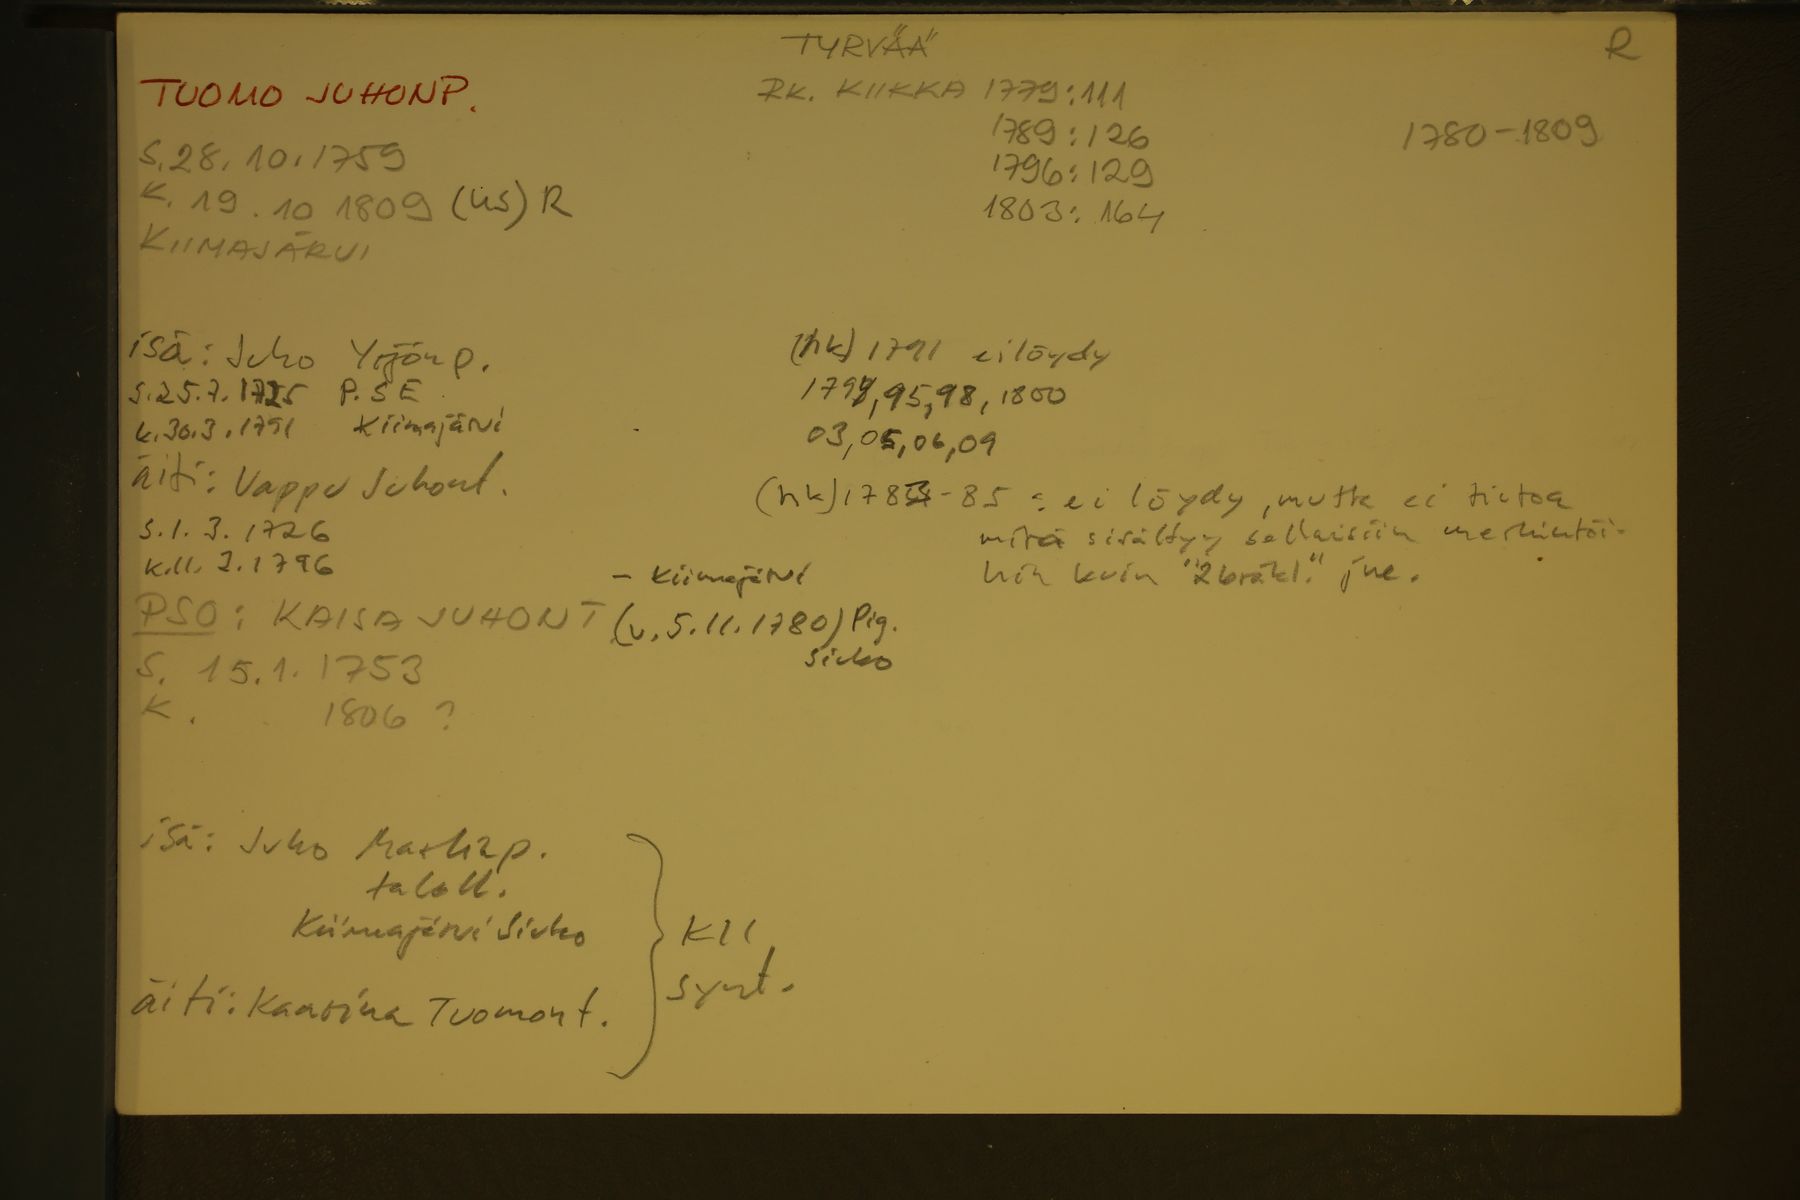 TYRVÄÄ
R
TUOMO JUHONP.
RK. KIIKKA 1779:111
1789:126
1780-1809
S. 28.10.1759
1796:129
K. 19.10 1809 (us) R
1803: 164
KIIMAJÄRVI
isä: Juho Yrjönp.
S. 25.7.1725 P.S E
k. 30.3.1791 Kiimajärvi
äiti: Vappu Juhont.
s. 1. 3. 1726
k. 11. 2. 1796
(hk) 1791 ei löydy
1794, 95, 98, 1800
03, 05, 06, 09
(hk) 1783-85 : ei löydy, mutta ei tietoa
mitä sisältyy sellaisiin merkintöi-
hin kuin "2 bräkl." jne.
- Kiimajärvi
PSO: KAISA JUHONT (v. 5.11.1780) Pig.
Sivko
S. 15.1. 1753
K. 1806 ?
isä: Juho Markp.
taloll.
Kiimajärvi Sivko
äiti: Kaarina Tuomont.
KII
synt.